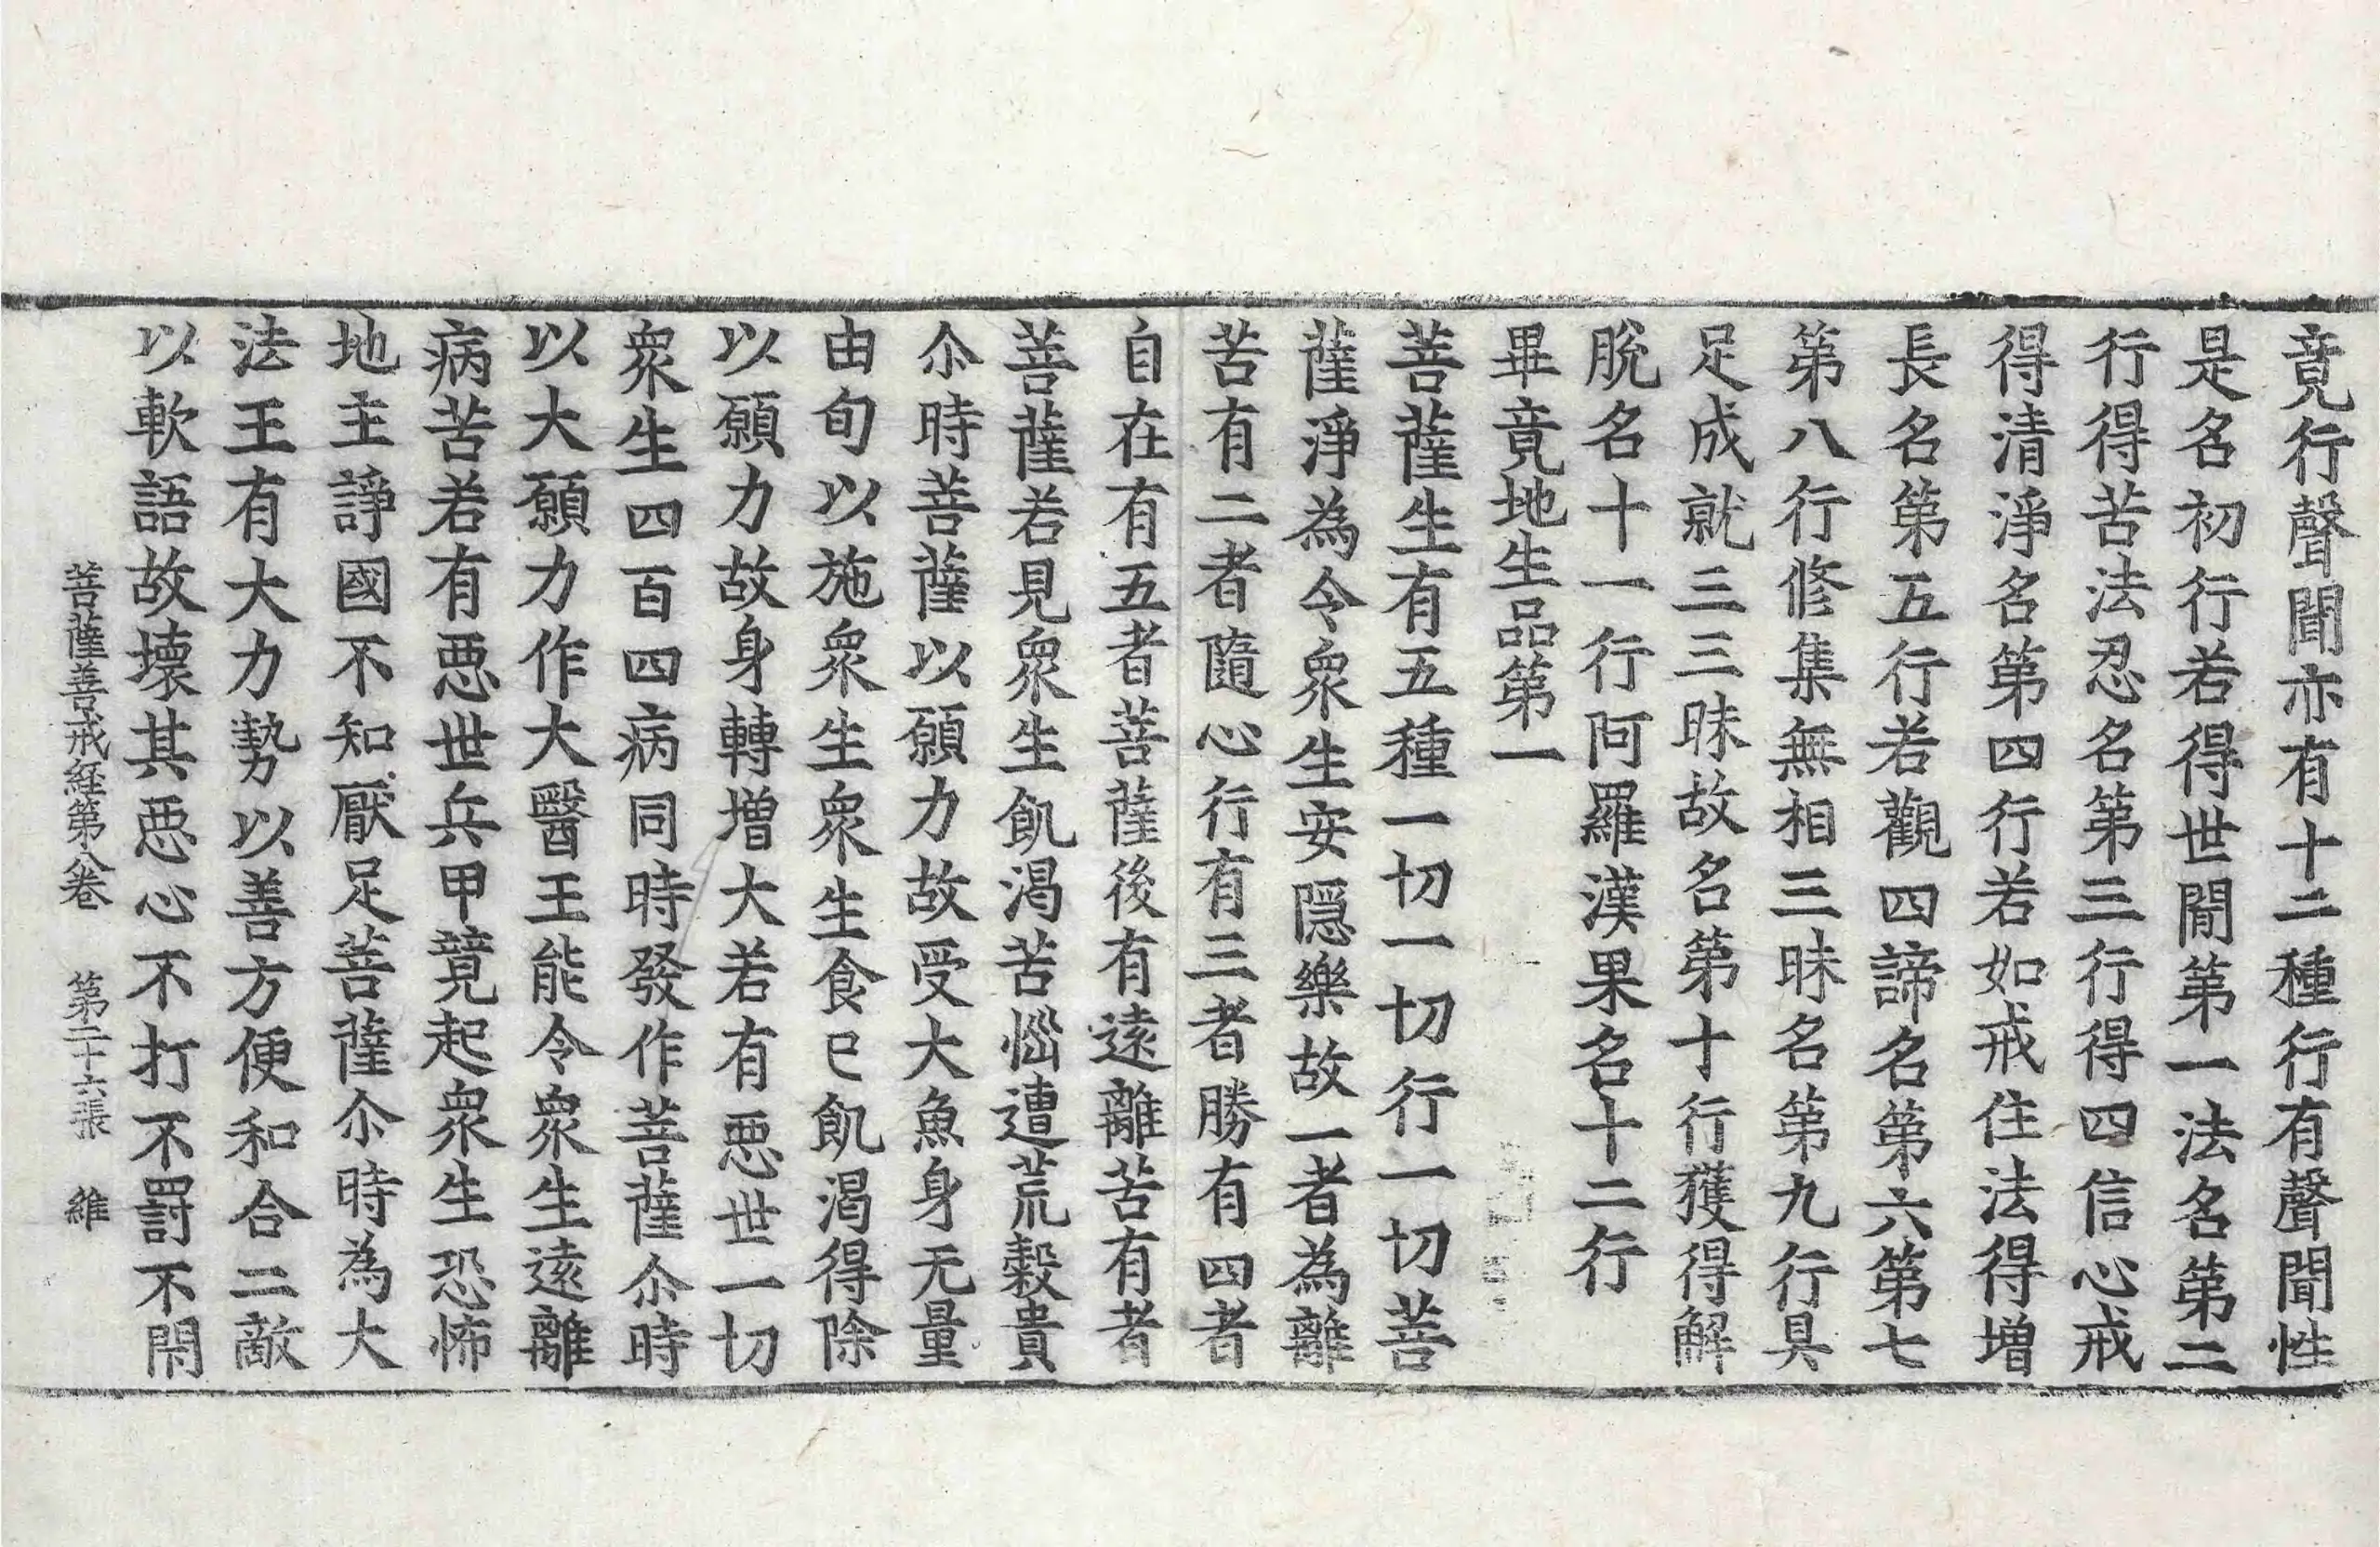 竟行聲聞亦有十二種行有聲聞性
是名初行若得世閒第一法名第二
行得苦法忍名第三行得四信心戒
得清淨名第四行若如戒住法得增
長名第五行若觀四諦名第六第七
第八行修集無相三昧名第九行具
足成就三三昧故名第十行獲得解
脫名十一行阿羅漢果名十二行
畢竟地生品第一
菩薩生有五種一切一切行一切菩
薩淨為令衆生安隱樂故一者為離
苦有二者隨心行有三者勝有四者
自在有五者菩薩後有遠離苦有者
菩薩若見衆生飢渴苦惱遭荒穀貴
尒時菩薩以願力故受大魚身无量
由旬以施衆生衆生食已飢渴得除
以願力故身轉增大若有惡世一切
衆生四百四病同時發作菩薩尒時
以大願力作大醫王能令衆生遠離
病苦若有惡世兵甲競起衆生恐怖
地主諍國不知厭足菩薩尒時為大
法王有大力勢以善方便和合二敵
以軟語故壞其惡心不打不罸不閇
菩薩善戒経第八卷 第二十六張 維